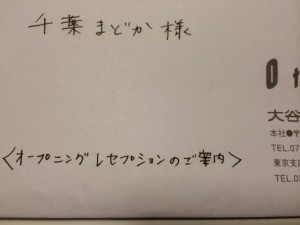 千葉まどか様
大谷
本社●〒
TEL.07
東京支
TEL.03
〈オープニングレセプションのご案内〉